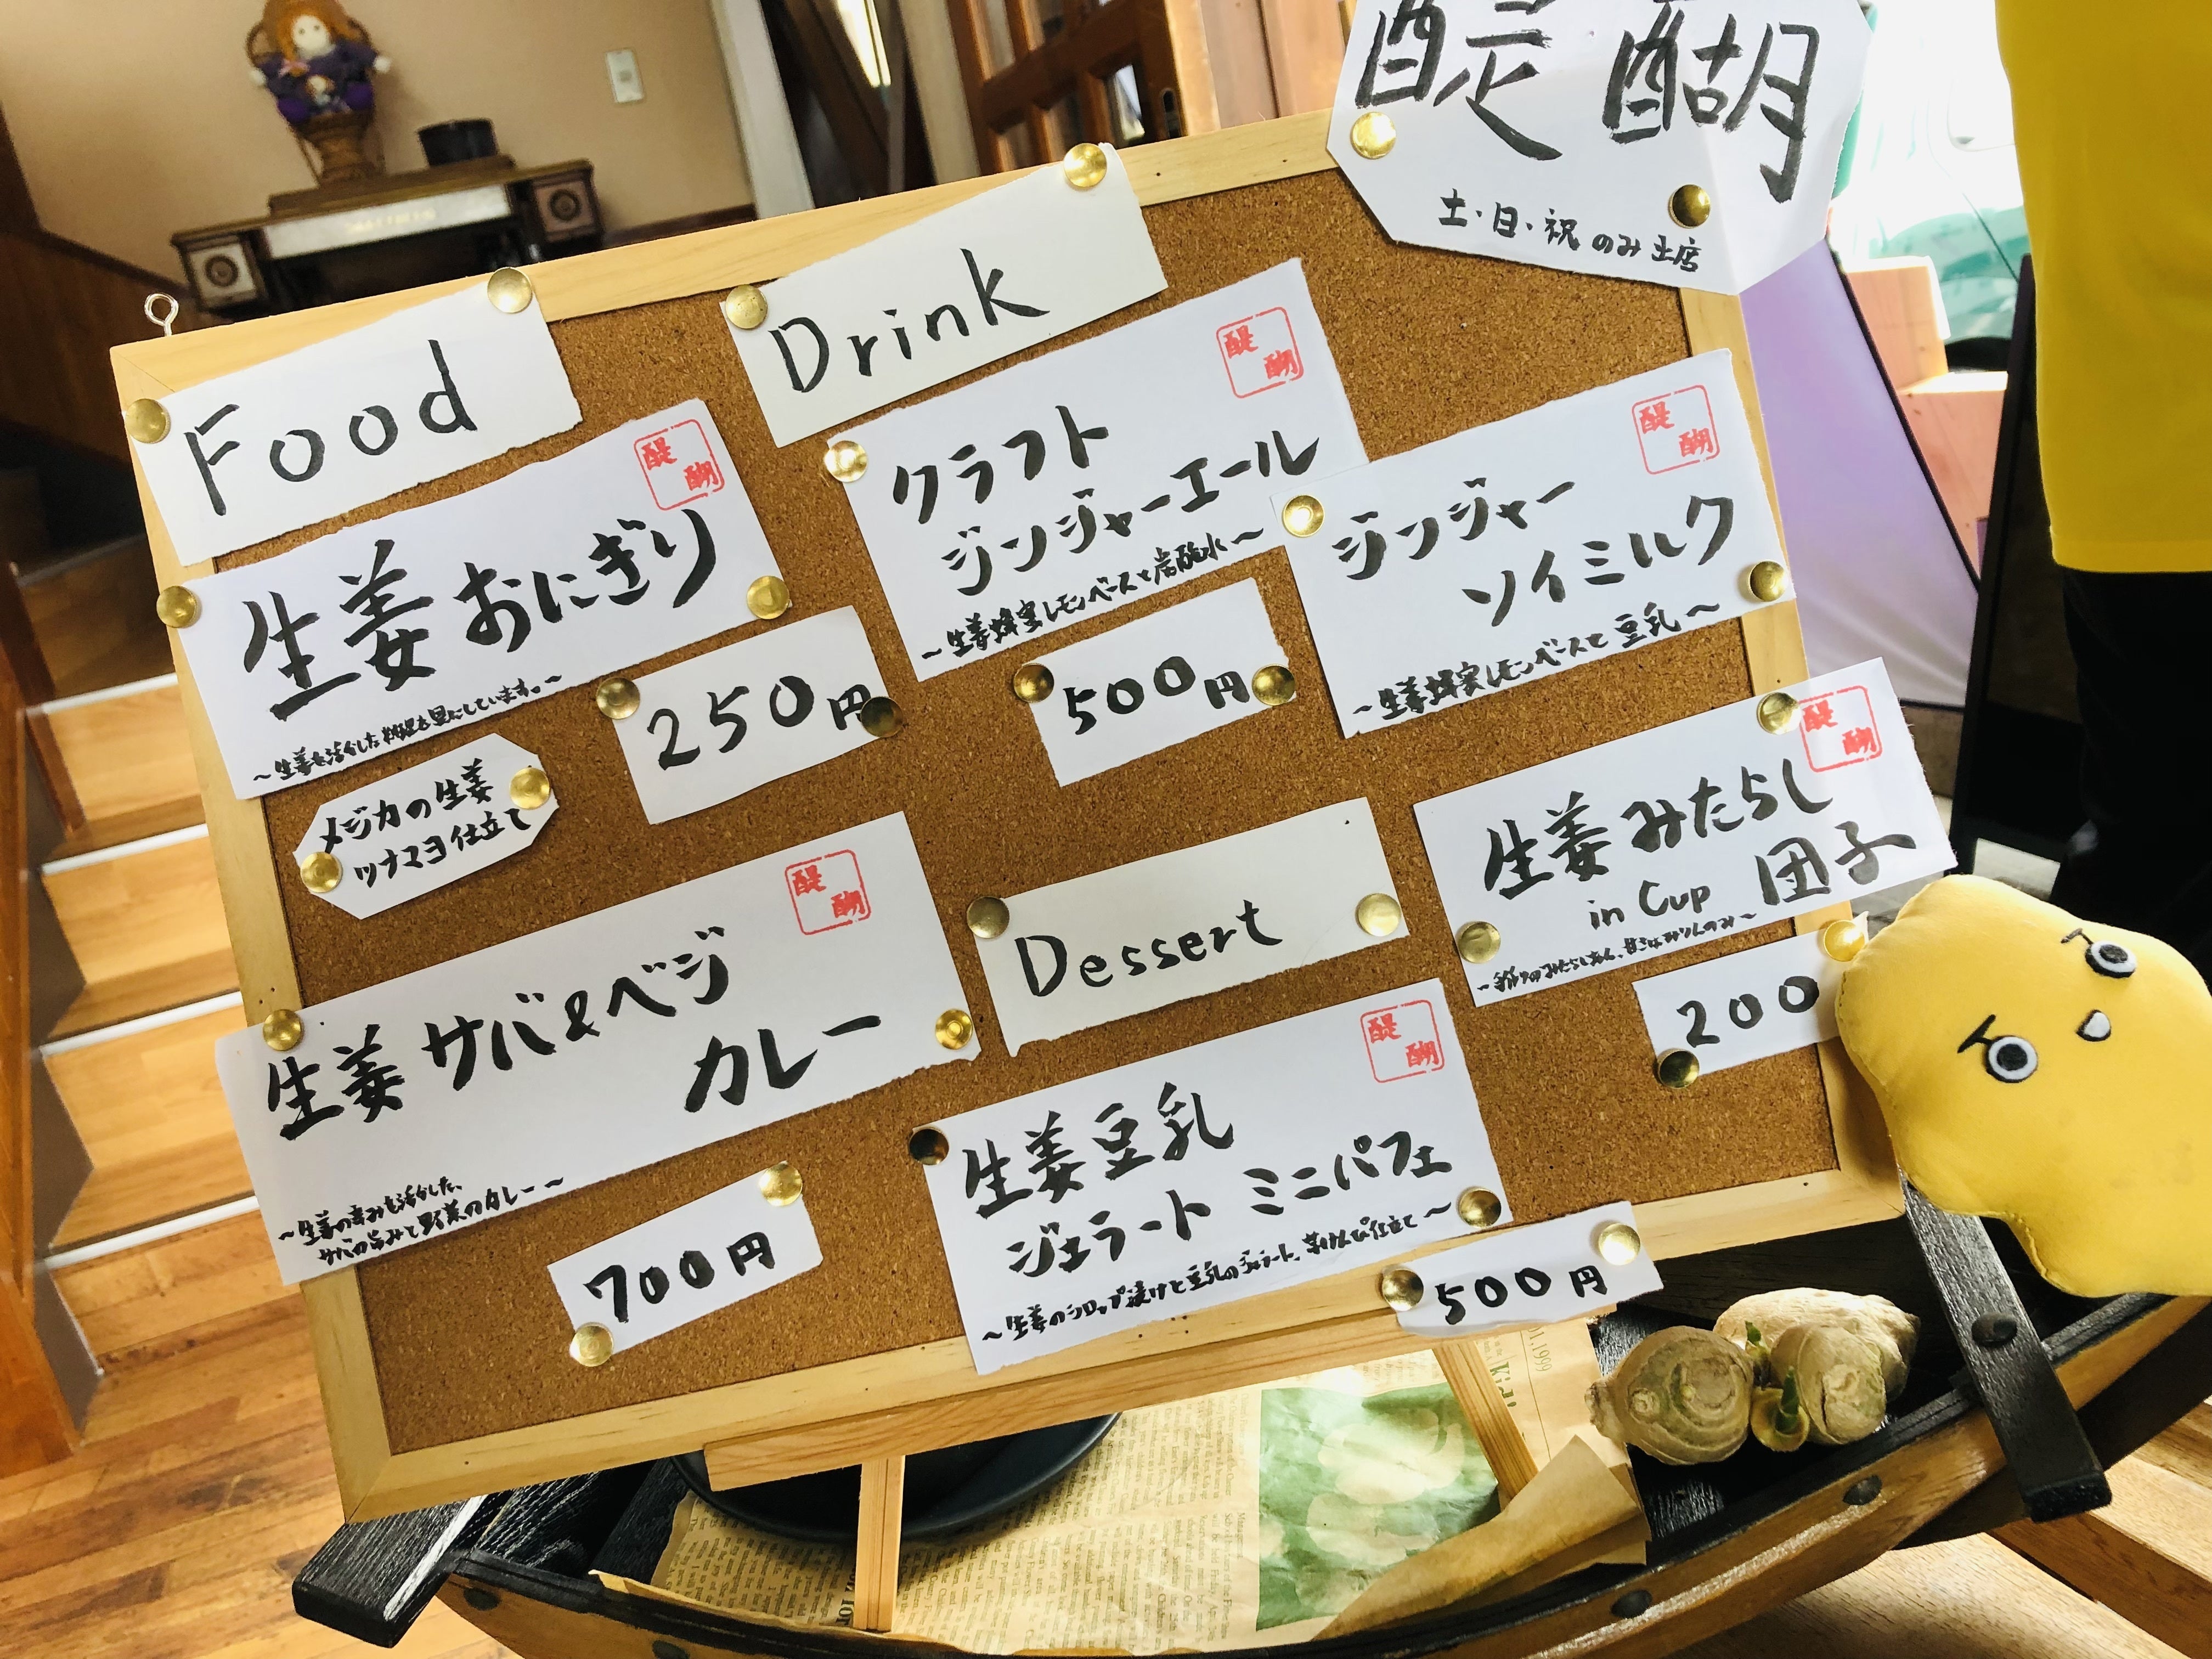 醍醐
土・日・祝 のみ 出店
Food
醍醐
生姜 おにぎり
〜生姜を活かした料理を具にしています。〜
250円
メジカの生姜
ツナマヨ仕立て
醍醐
生姜 サバ&ベジ
カレー
〜生姜の辛みを活かした、
サバの旨みと野菜のカレー〜
700円
Drink
醍醐
クラフト
ジンジャーエール
〜生姜蜂蜜レモンベースと炭酸水〜
500円
醍醐
ジンジャー
ソイミルク
〜生姜蜂蜜レモンベースと豆乳〜
Dessert
醍醐
生姜みたらし
in Cup 団子
〜手作りのみたらしあん、甘さはみりんのみ〜
200
醍醐
生姜豆乳
ジェラート ミニパフェ
〜生姜のシロップ漬けと豆乳のジェラート、芋けんぴ仕立て〜
500円